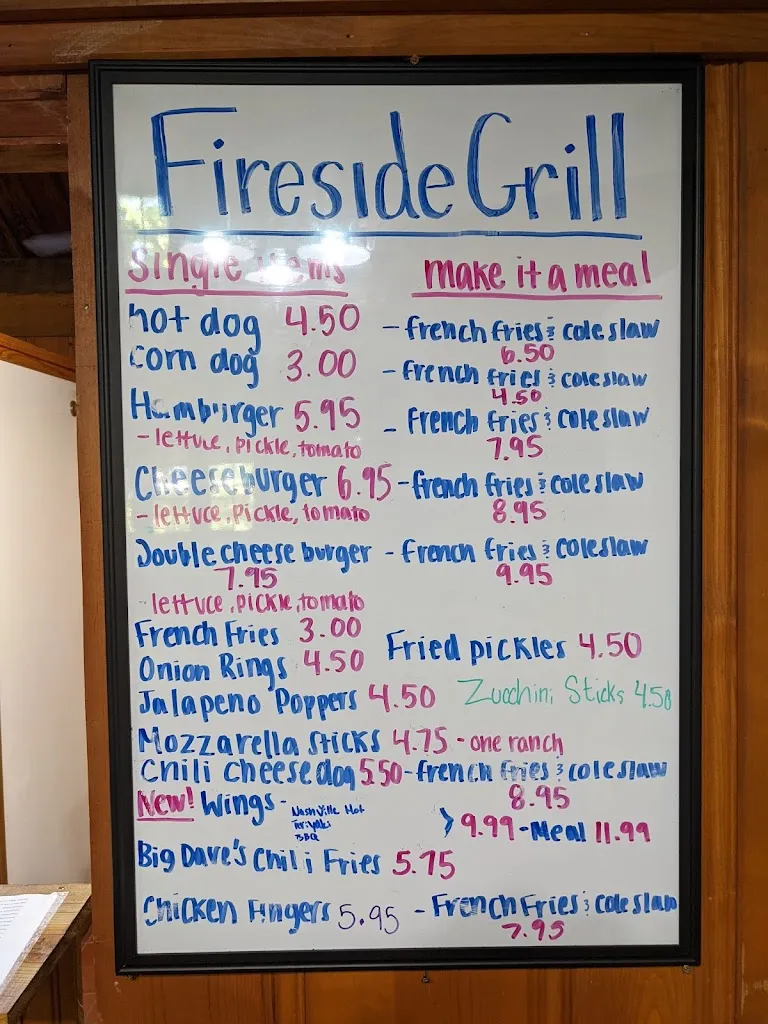 Fireside Grill
Single Items make it a meal
hot dog 4.50 - french fries & coleslaw
6.50
corn dog 3.00 - french fries & coleslaw
4.50
Hamburger 5.95 - french fries & coleslaw
- lettuce, pickle, tomato 7.95
Cheeseburger 6.95 - french fries & coleslaw
- lettuce, pickle, tomato 8.95
Double cheese burger - french fries & coleslaw
7.95 9.95
- lettuce, pickle, tomato
French Fries 3.00
Fried pickles 4.50
Onion Rings 4.50
Jalapeno Poppers 4.50 Zucchini Sticks 4.50
Mozzarella sticks 4.75 - one ranch
Chili cheese dog 5.50 - french fries & coleslaw
8.95
New! Wings - Nashville Hot
Teriyaki
BBQ
> 9.99 - Meal 11.99
Big Dave's Chili Fries 5.75
Chicken Fingers 5.95 - French Fries & coleslaw
7.95